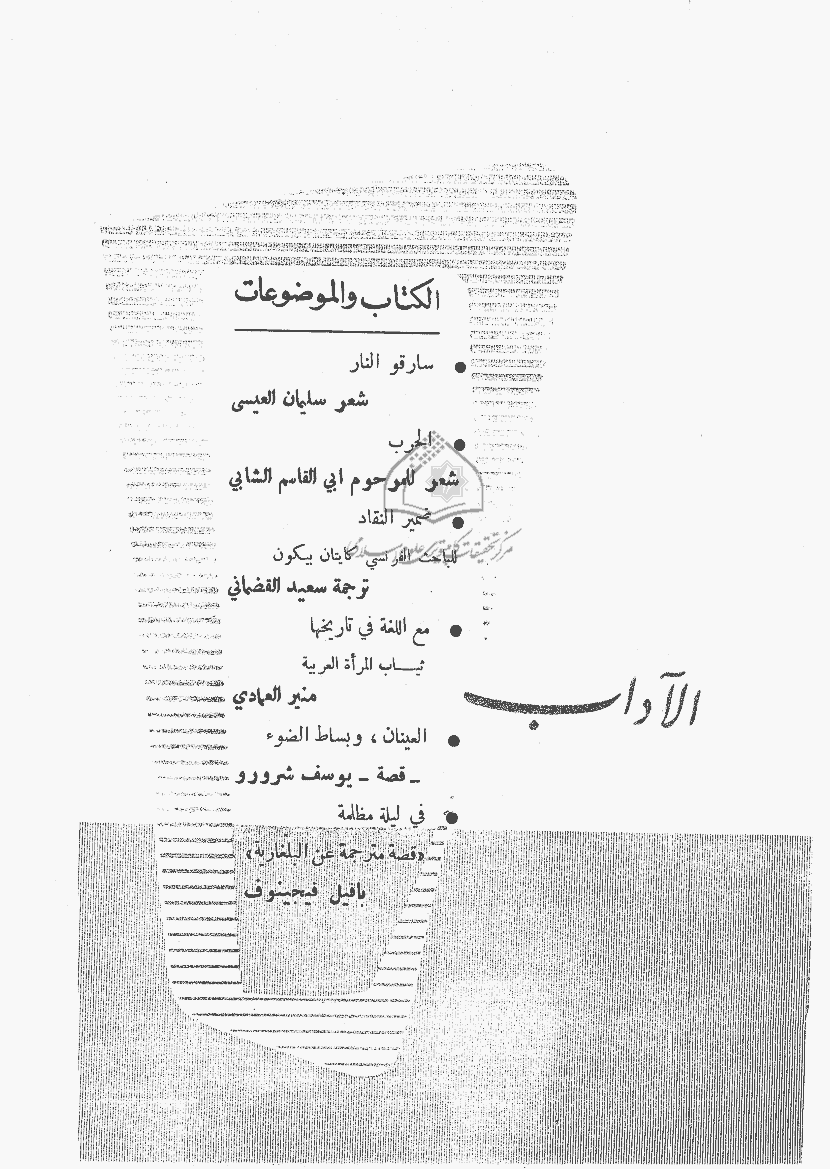 الكتاب والموضوعات
● سارقو النار
شعر سليمان العيسى
● الحرب
شعر للمرحوم ابي القاسم الشابي
● ضمير النقاد
للباحث الفرنسي كايتان بيكون
ترجمة سعيد القضماني
● مع اللغة في تاريخها
ثيـــاب المرأة العربية
منير العمادي
الآداب
● العينان ، وبساط الضوء
ـ قصة ـ يوسف شرورو
● في ليلة مظلمة
«قصة مترجمة عن البلغارية»
بافيل فيجينوف